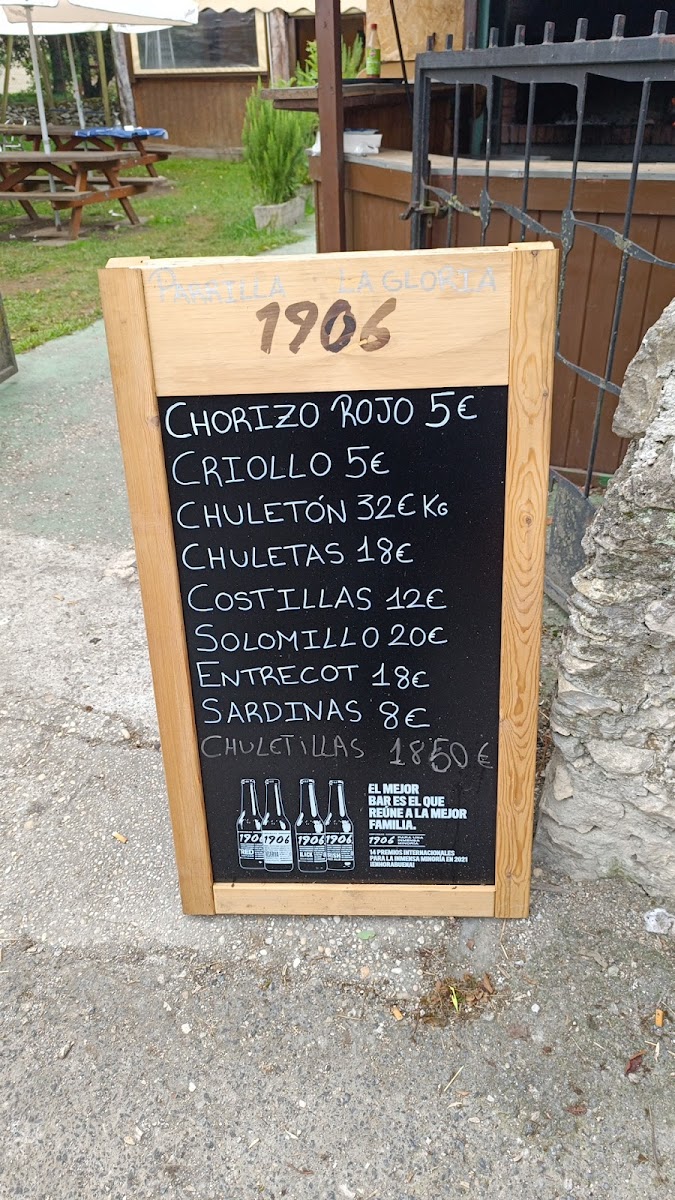 PARRILLA LA GLORIA
1906
CHORIZO ROJO 5€
CRIOLLO 5€
CHULETÓN 32€ KG
CHULETAS 18€
COSTILLAS 12€
SOLOMILLO 20€
ENTRECOT 18€
SARDINAS 8€
CHULETILLAS 18'50€
1906 1906 1906 1906
EL MEJOR
BAR ES EL QUE
REÚNE A LA MEJOR
FAMILIA.
1906
14 PREMIOS INTERNACIONALES
PARA LA INMENSA MINORÍA EN 2021
¡ENHORABUENA!